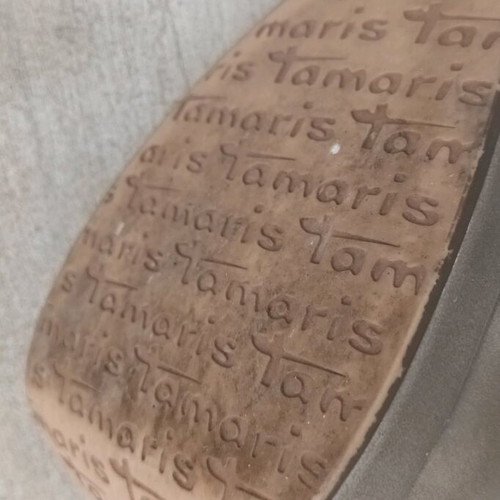 maris Tam
ris Tamaris
Tamaris Tam
aris Tamaris
s Tamaris Tam
maris Tamaris
s Tamaris Tam
maris Tamaris
s Tamaris T
maris T